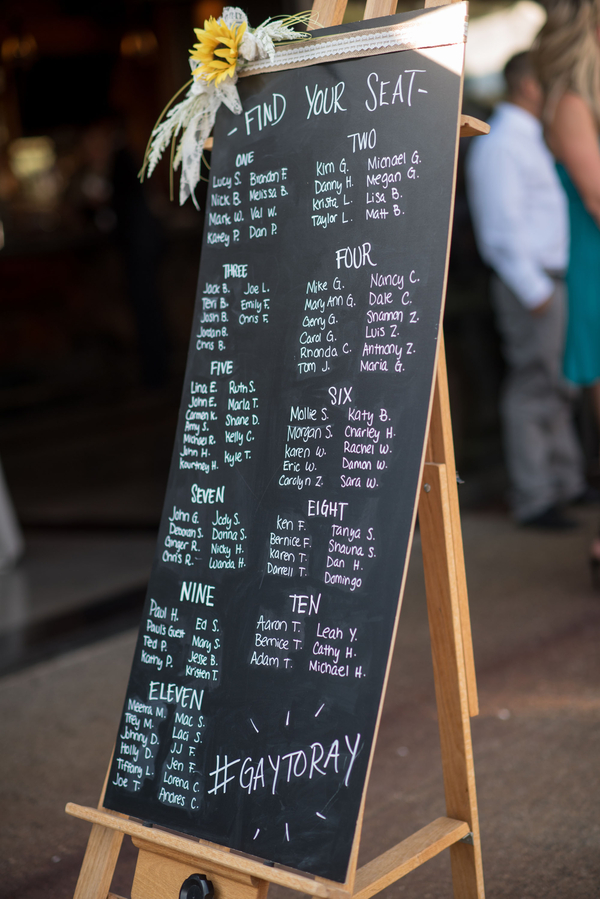 -FIND YOUR SEAT-
ONE
Lucy S. Brandon F.
Nick B. Melissa B.
Mark W. Val W.
Katey P. Dan P.
TWO
Kim G. Michael G.
Danny H. Megan G.
Krista L. Lisa B.
Taylor L. Matt B.
THREE
Jack B. Joe L.
Teri B. Emily F.
Josh B. Chris F.
Jordan B.
Chris B.
FOUR
Mike G. Nancy C.
Mary Ann G. Dale C.
Gerry G. Shannon Z.
Carol G. Luis Z.
Rhonda C. Anthony Z.
Tom J. Maria G.
FIVE
Lina E. Ruth S.
John E. Marla T.
Carmen K. Shane D.
Amy S. Kelly C.
Michael R. Kyle T.
John H.
Kourtney H.
SIX
Mollie S. Katy B.
Morgan S. Charley H.
Karen W. Rachel W.
Eric W. Damon W.
Carolyn Z. Sara W.
SEVEN
John G. Jody S.
Deborah S. Donna S.
Ginger R. Nicky H.
Chris R. Wanda H.
EIGHT
Ken F. Tanya S.
Bernice F. Shauna S.
Karen T. Dan H.
Darrell T. Domingo
NINE
Paul H. Ed S.
Paul's Guest Mary S.
Ted P. Jesse B.
Kathy P. Kristen T.
TEN
Aaron T. Leah Y.
Bernice T. Cathy H.
Adam T. Michael H.
ELEVEN
Meema M. Mac S.
Trey M. Laci S.
Johnny D. JJ F.
Holly D. Jen F.
Tiffany L. Lorena C.
Joe T. Andres C.
#GAYTORAY